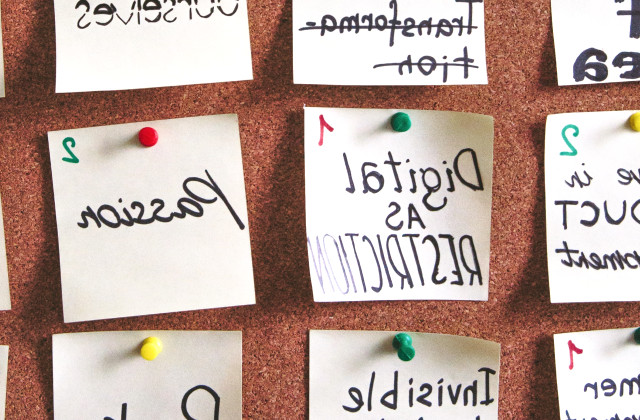 ourselves
Transforma-
tion
2
Passion
1
Digital
AS
RESTRICTION
2
ve in
DUCT
opment
Invisible
1
mer